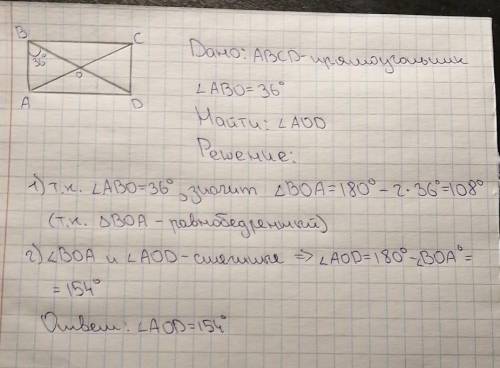 B
C
36°
O
A
D
Дано: ABCD-прямоугольник
∠ABO=36°
Найти: ∠AOD
Решение:
1) т.к. ∠ABO=36°, значит ∠BOA=180°-2·36°=108°
(т.к. △BOA-равнобедренний)
2) ∠BOA и ∠AOD-смежные => ∠AOD=180°-∠BOA°=
=154°
Ответ: ∠AOD=154°